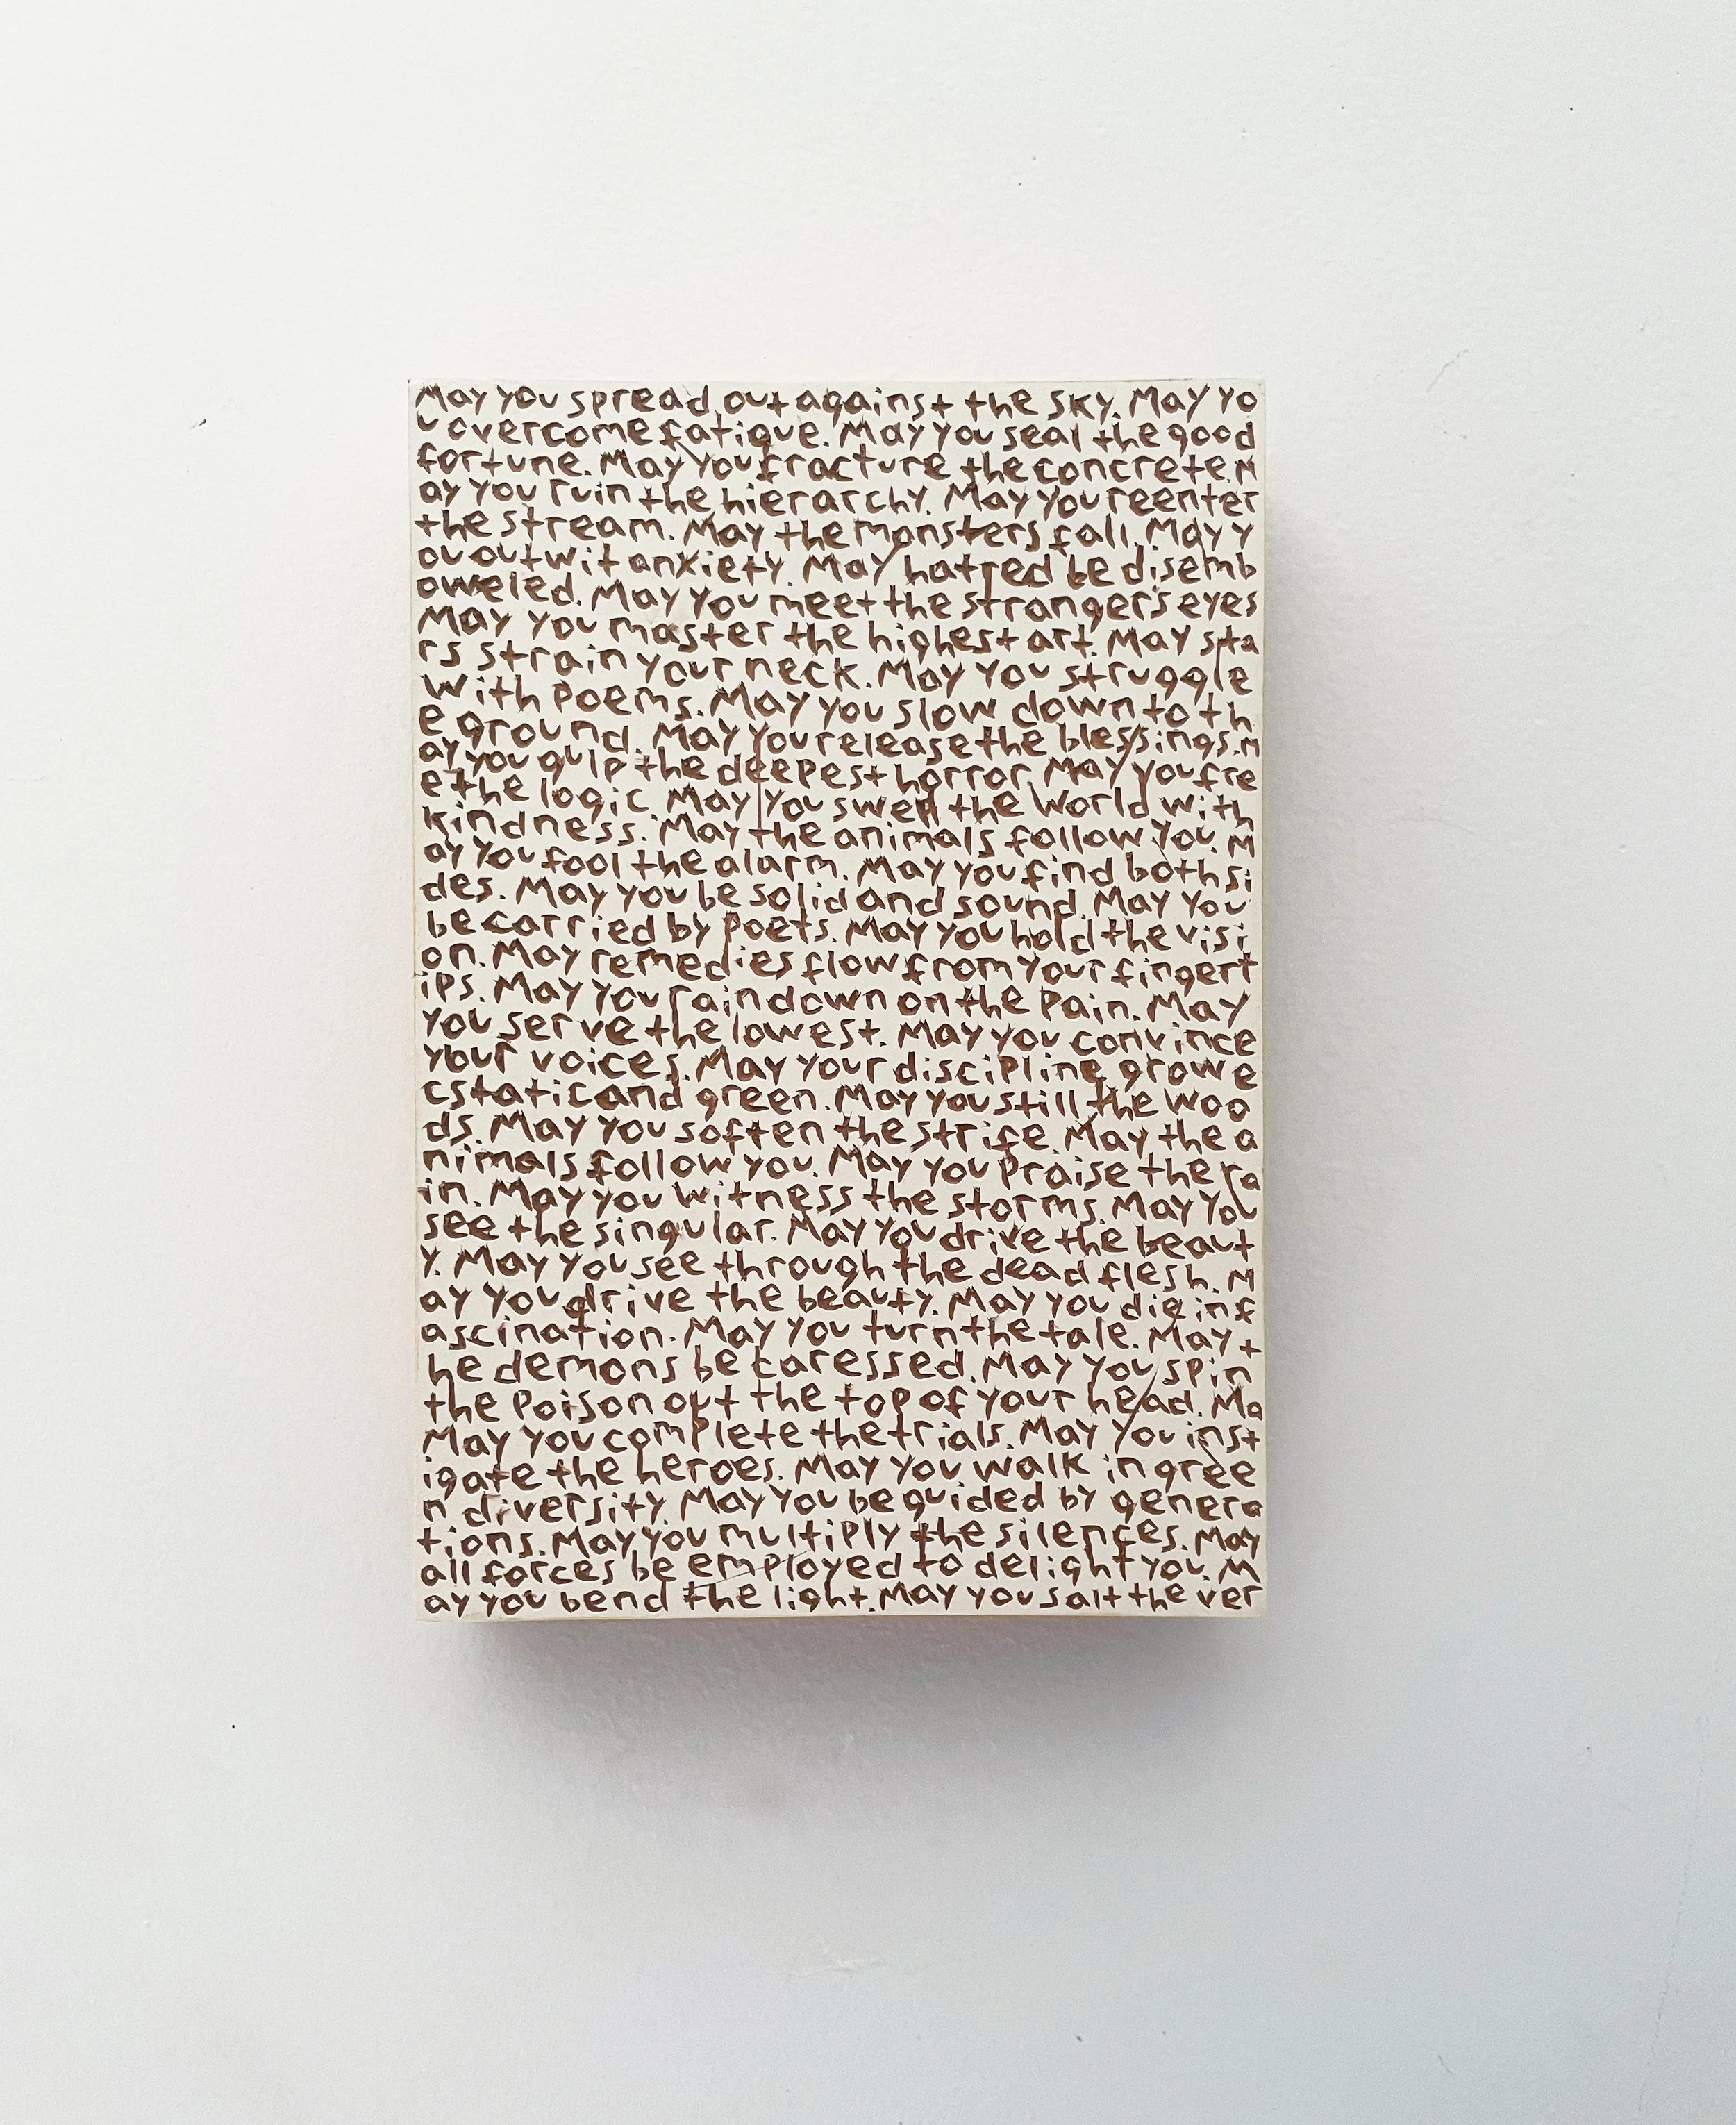 May you spread out against the sky. May yo
u overcome fatigue. May you seal the good
fortune. May you fracture the concrete. M
ay you ruin the hierarchy. May you reenter
the stream. May the monsters fall. May y
ou outwit anxiety. May hatred be disemb
oweled. May you meet the stranger's eyes
May you master the highest art. May sta
rs strain your neck. May you struggle
with poems. May you slow down to th
e ground. May you release the blessings. M
ay you gulp the deepest horror. May you fre
e the logic. May you swell the world with
kindness. May the animals follow you. M
ay you fool the alarm. May you find both si
des. May you be solid and sound. May you
be carried by poets. May you hold the visi
on. May remedies flow from your fingert
ips. May you rain down on the pain. May
you serve the lowest. May you convince
your voices. May your discipline grow e
cstatic and green. May you still the woo
ds. May you soften the strife. May the a
nimals follow you. May you praise the ra
in. May you witness the storms. May you
see the singular. May you drive the beaut
y. May you see through the dead flesh. M
ay you drive the beauty. May you die in f
ascination. May you turn the tale. May t
he demons be caressed. May you spin
the poison out the top of your head. Ma
May you complete the trials. May you inst
igate the heroes. May you walk in gree
n diversity. May you be guided by genera
tions. May you multiply the silences. May
all forces be employed to delight you. M
ay you bend the light. May you salt the ver